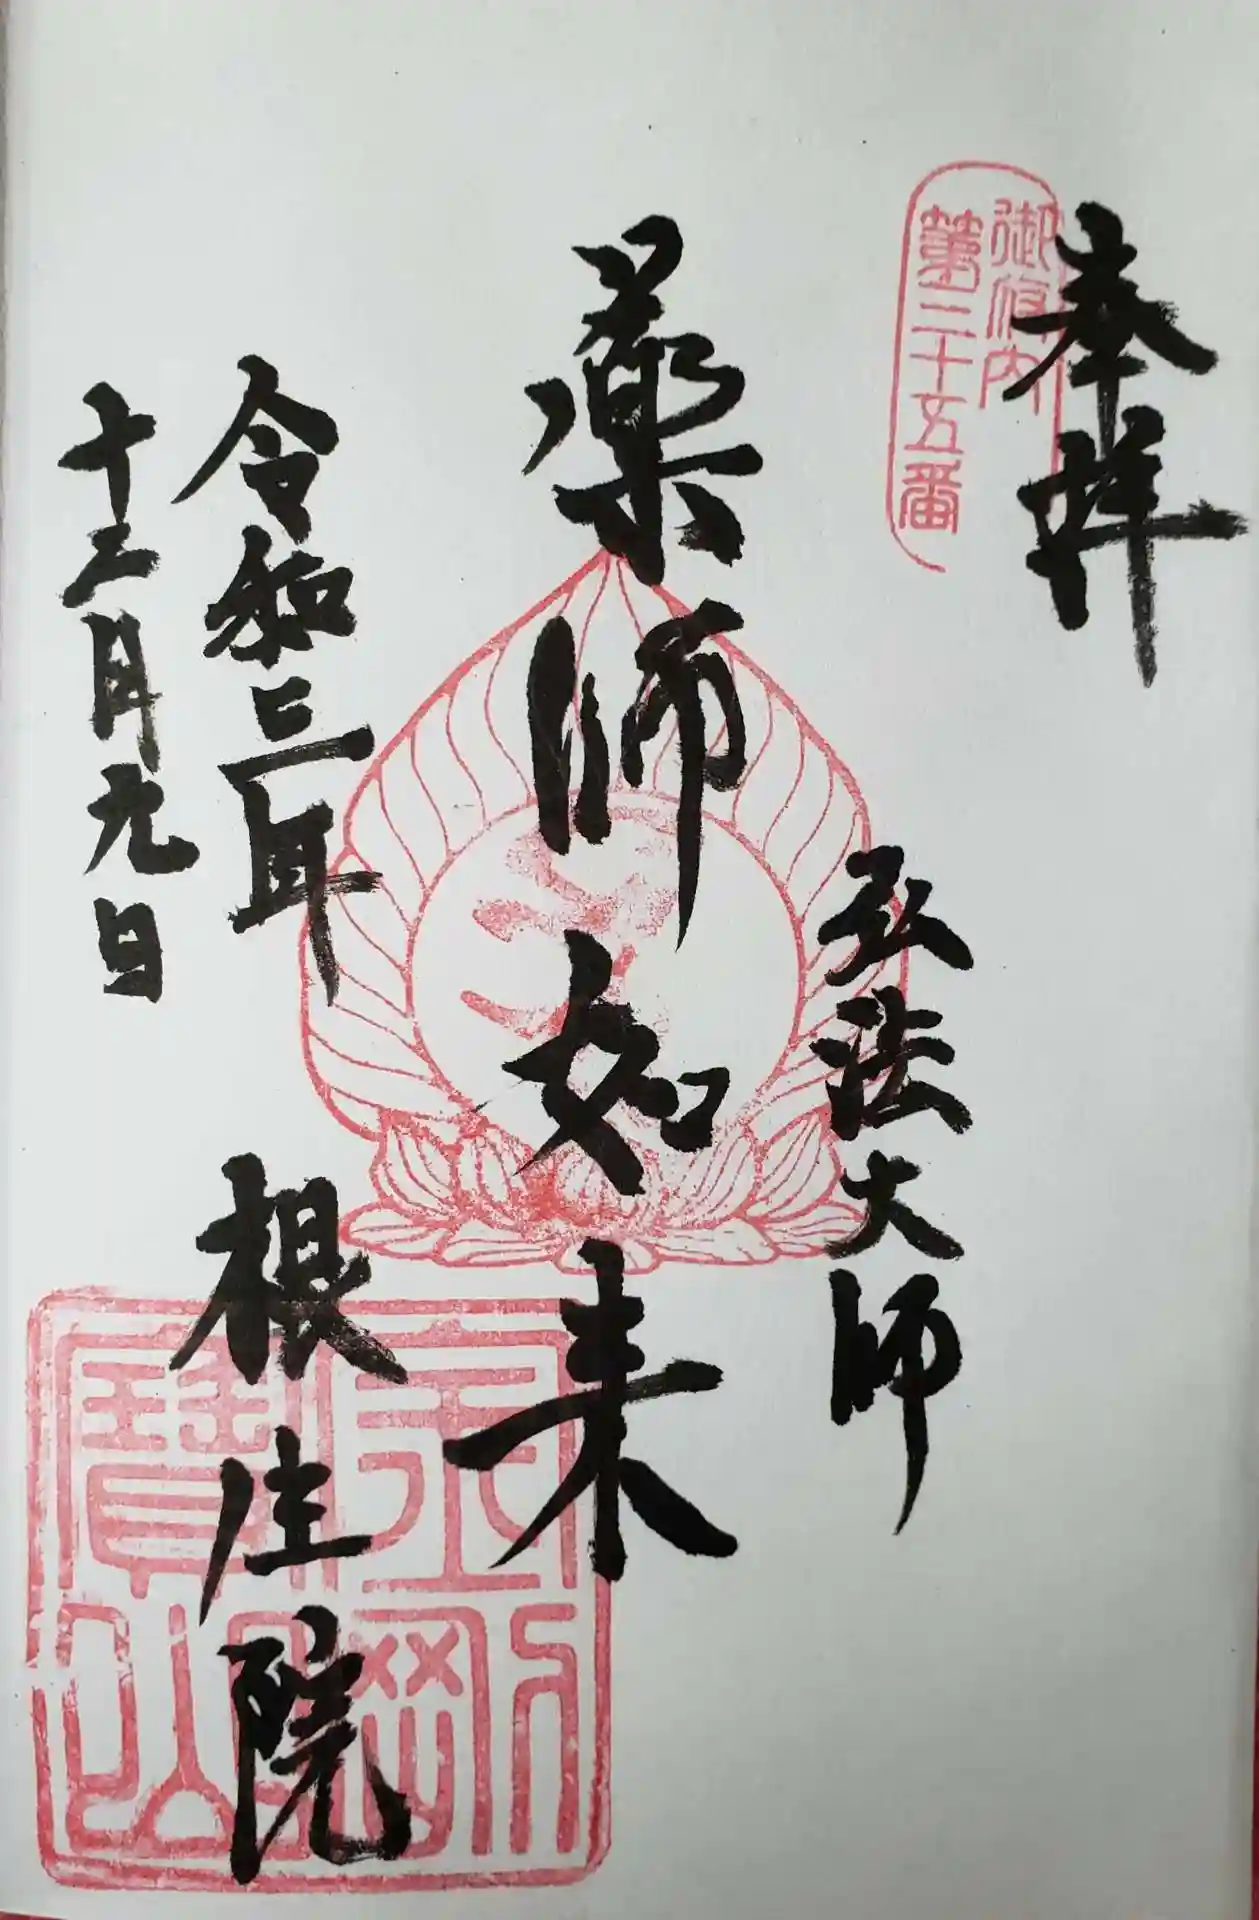 奉拝
御府内
第三十五番
弘法大師
薬師如来
令和三年
十二月九日
根生院
金剛
寶山